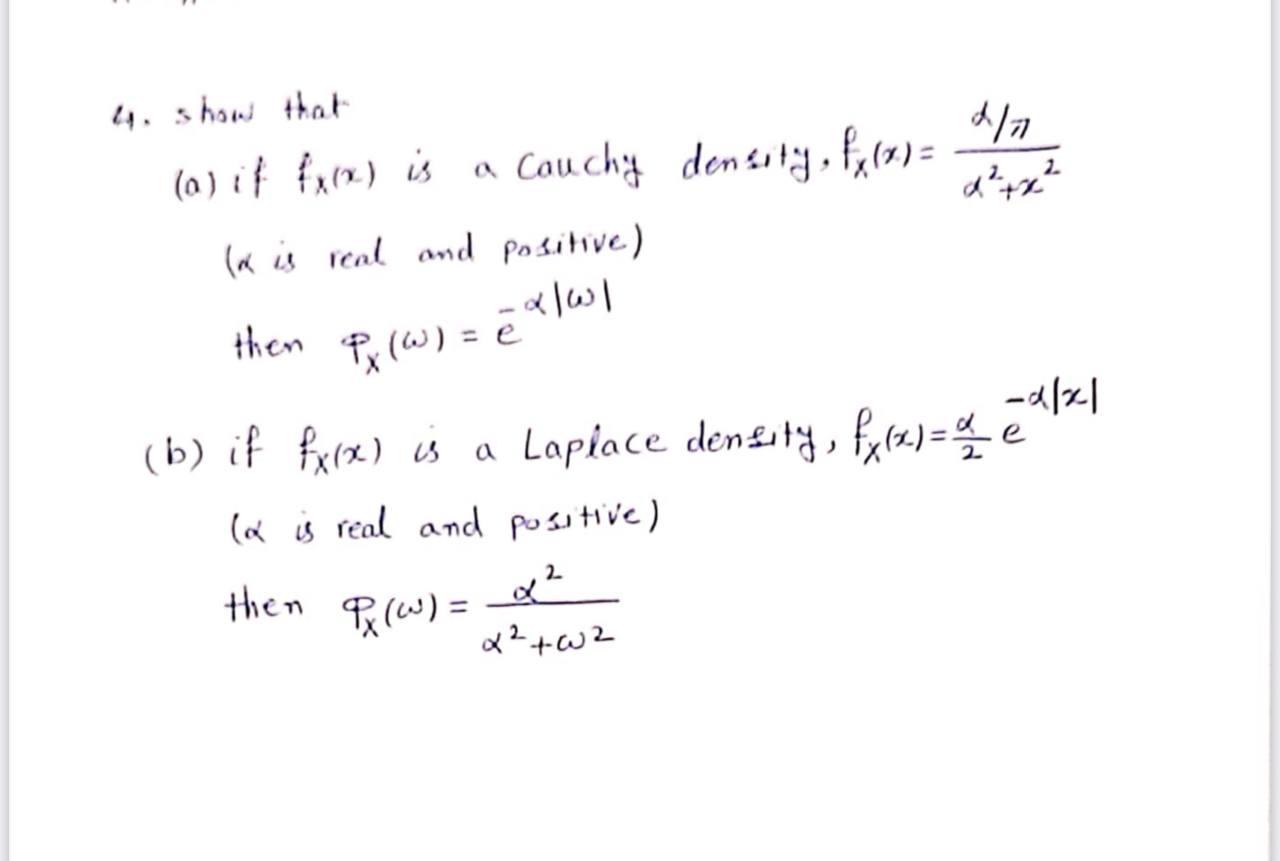 4. show that
(a) if fx(x) is a Cauchy density, fx(x) = α/π / α²+x²
(α is real and positive)
then φx(ω) = e^-α|ω|
(b) if fx(x) is a Laplace density, fx(x) = α/2 e^-α|x|
(α is real and positive)
then φx(ω) = α² / α²+ω²